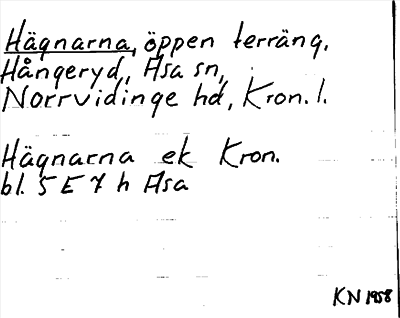 Hägnarna, öppen terräng.
Hångeryd, Asa sn,
Norrvidinge hd, Kron. l.
Hägnarna ek Kron.
bl. 5 E 7 h Asa
KN 1958